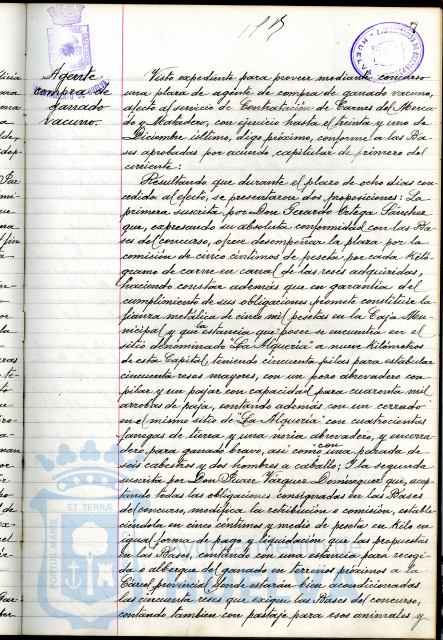 Agente
compra de
ganado
vacuno.
Visto expediente para proveer mediante concurso
una plaza de agente de compra de ganado vacuno,
afecto al servicio de Contratación de Carnes del Merca-
do y Matadero, con ejercicio hasta el treinta y uno de
Diciembre último, digo próximo, conforme a las Ba-
ses aprobadas por acuerdo capitular de primero del
corriente:
Resultando que durante el plazo de ocho días con-
cedido al efecto, se presentaron dos proposiciones: La
primera suscrita por Don Gerardo Ortega Sánchez
que, expresando su absoluta conformidad con las Ba-
ses del concurso, ofrece desempeñar la plaza por la
comisión de cinco céntimos de peseta por cada kiló-
gramo de carne en canal de las reses adquiridas,
haciendo constar además que en garantía del
cumplimiento de sus obligaciones promete constituir la
fianza metálica de cinco mil pesetas en la Caja Mu-
nicipal y que la estancia que posee se encuentra en el
sitio denominado "La Alquería" a nueve kilómetros
de esta Capital, teniendo cincuenta pilas para estabular
cincuenta reses mayores, con un pozo abrevadero con
pilar y un pajar con capacidad para cuarenta mil
arrobas de paja, contando además con un cercado
en el mismo sitio de "La Alquería" con cuatrocientas
fanegas de tierra y una noria abrevadero, y encerra-
dero para ganado bravo, así como con una parada de
seis cabestros y dos hombres a caballo; Y la segunda
suscrita por Don Juan Vázquez Domínguez que, acep-
tando todas las obligaciones consignadas en las Bases
del concurso, modifica la retribución o comisión, estable-
ciéndola en cinco céntimos y medio de peseta en kilo en
igual forma de pago y liquidación que las propuestas
en las Bases, contando con una estancia para recogi-
da o albergue del ganado en terrenos próximos a la
Cárcel provincial donde estarán bien acondicionadas
las cincuenta reses que exigen las Bases del concurso,
contando también con pastaje para esos animales y
PORTUS MARIS
ET TERRAE